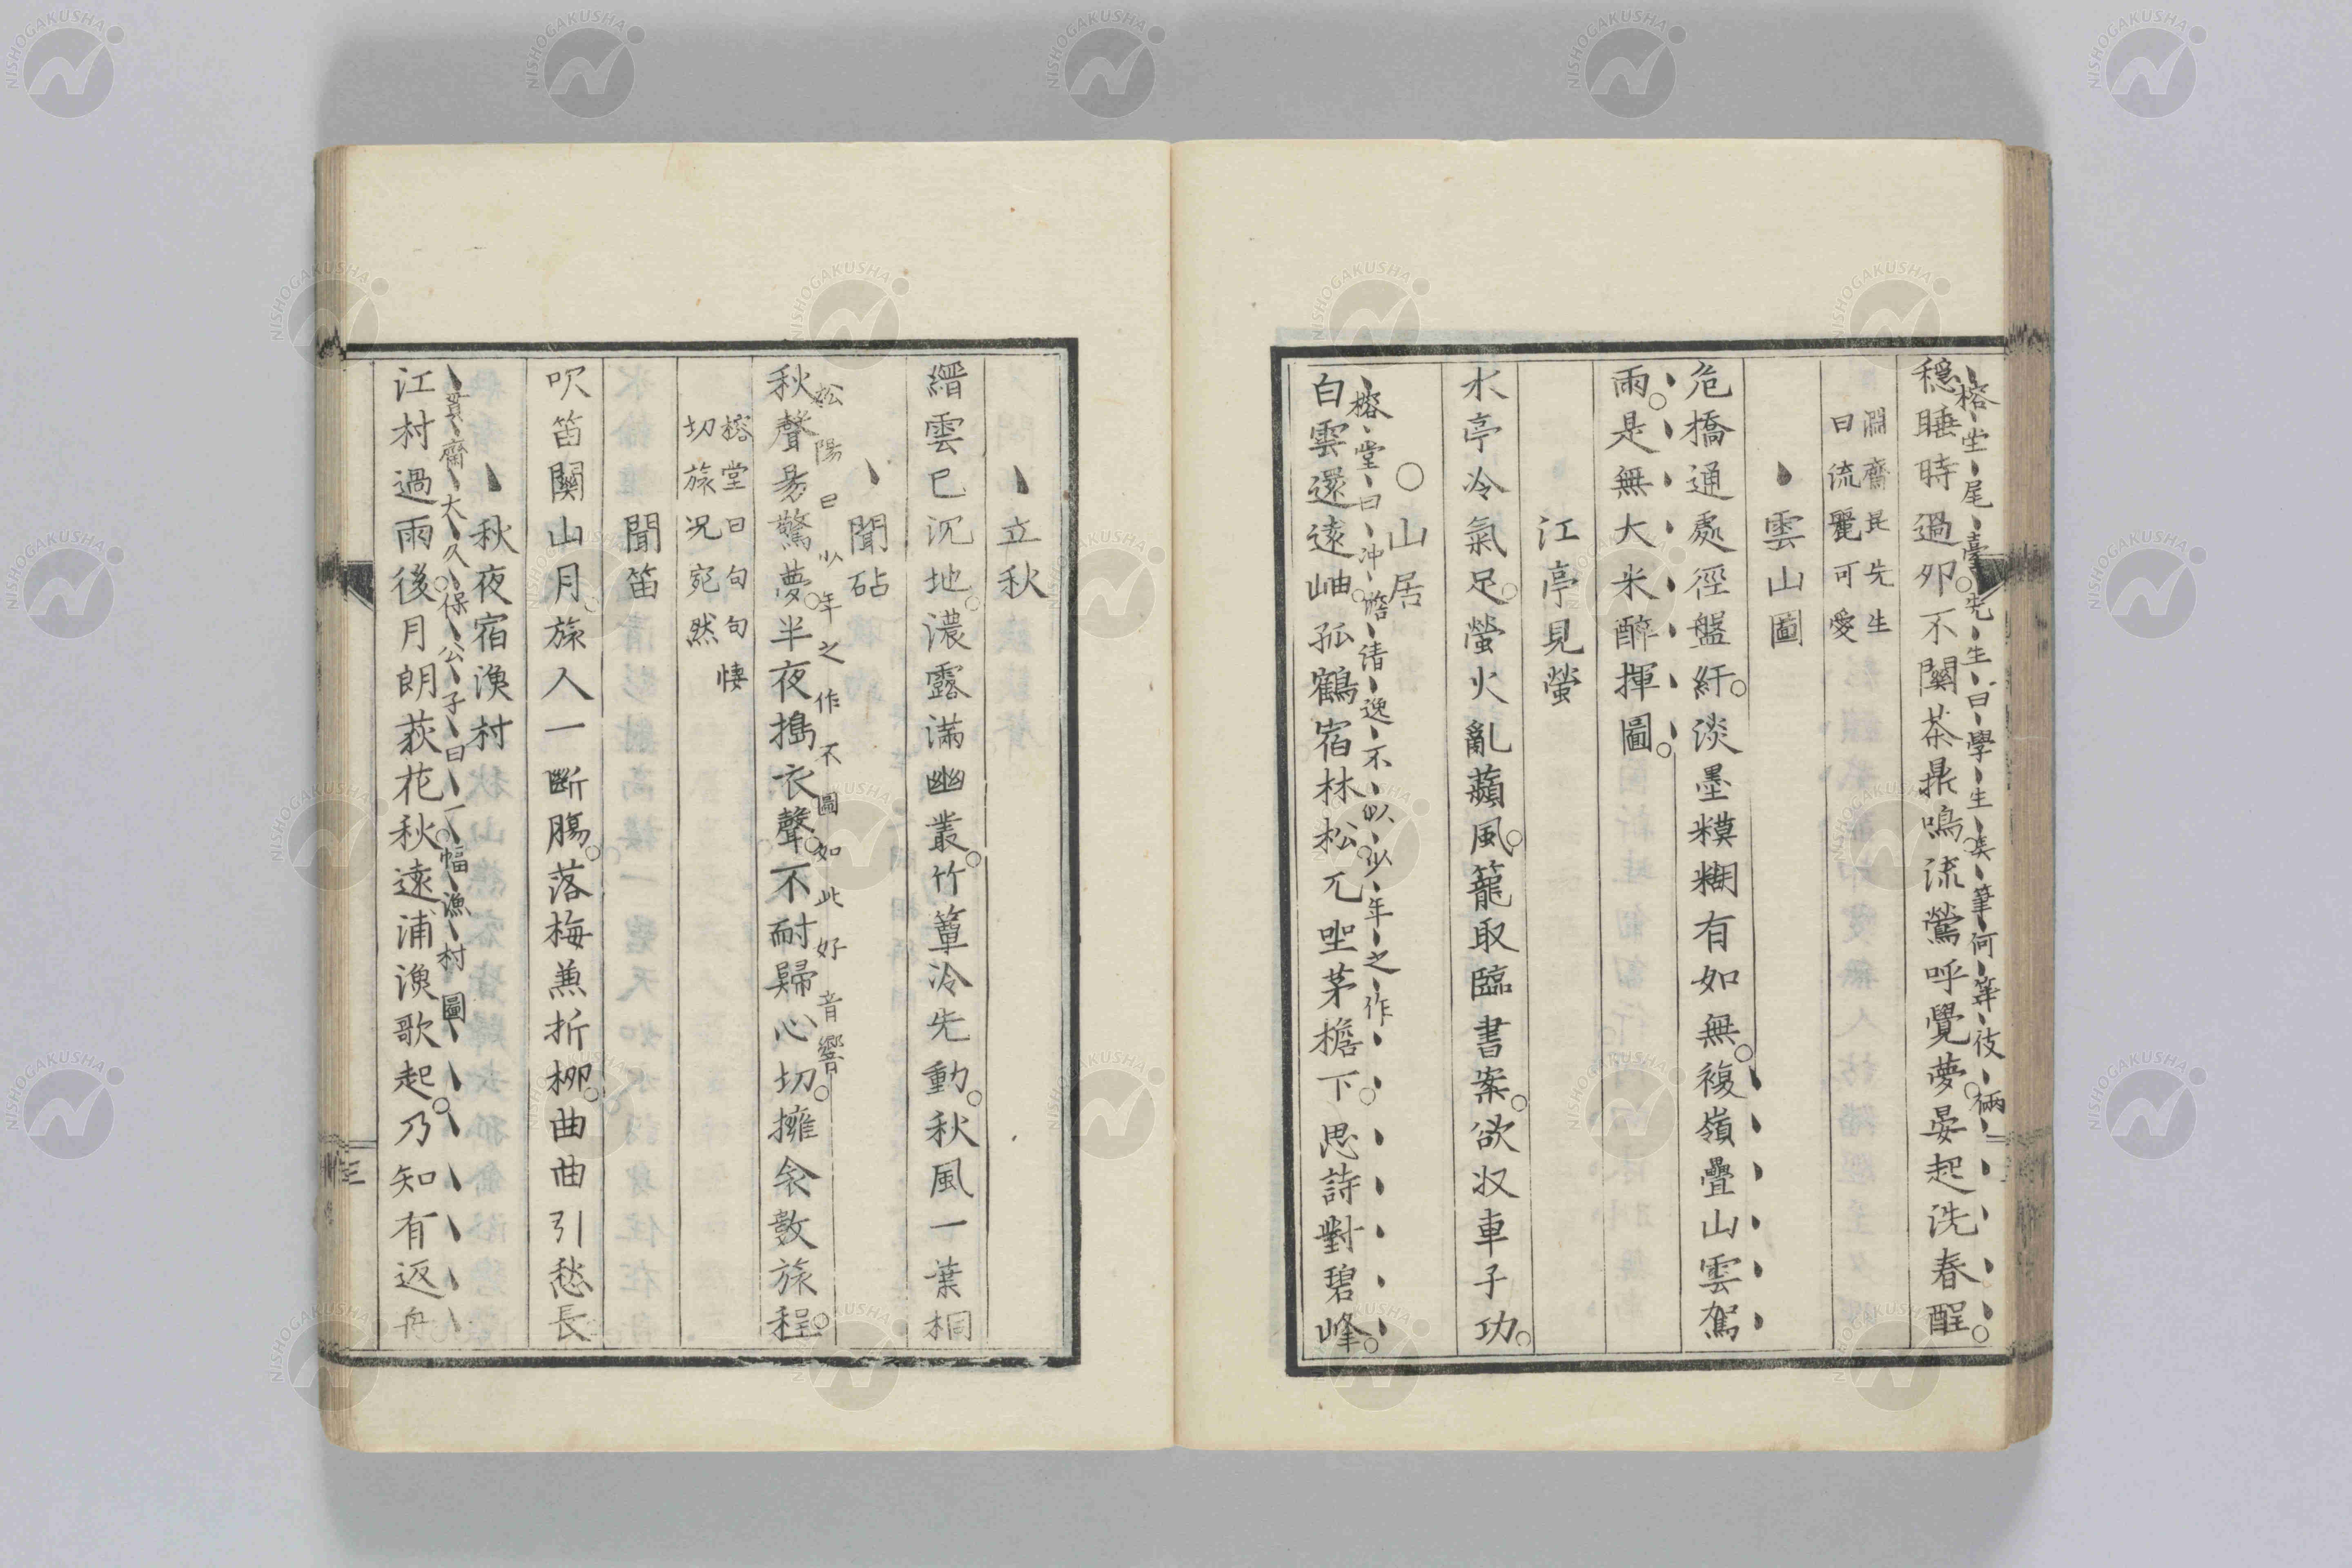 榕堂尾臺先生曰學生焉筆何等彼倆
穩睡時過卯不關茶鼎鳴流鶯呼覺夢晏起洗春酲
淵齋昆先生
曰流麗可愛
雲山圖
危橋通處徑盤紆淡墨糢糊有如無複嶺疊山雲駕
雨是無大米醉揮圖
江亭見螢
水亭冷氣足螢火亂蘋風籠取臨書案欲収車子功
○山居
榕堂曰冲澹清逸不似少年之作
白雲還遠岫孤鶴宿林松兀坐茅檐下思詩對碧峰
立秋
縉雲已沉地濃露滿幽叢竹簟冷先動秋風一葉桐
聞砧
松陽曰少年之作不圖如此好音響
秋聲易驚夢半夜搗衣聲不耐歸心切擁衾數旅程
榕堂曰句句悽
切旅況宛然
聞笛
吹笛關山月旅人一斷腸落梅兼折柳曲曲引愁長
秋夜宿漁村
貫齋大久保公子曰一幅漁村圖
江村過雨後月朗荻花秋遠浦漁歌起乃知有返舟
三
NISHOGAKUSHA